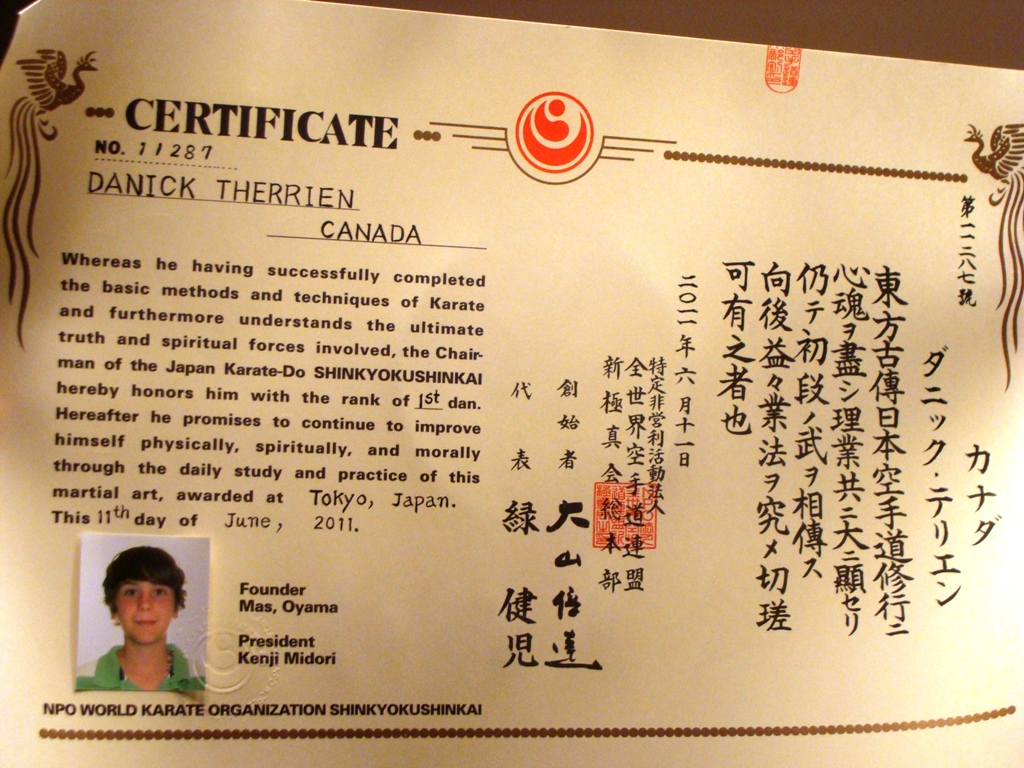 CERTIFICATE
NO. 11287
DANICK THERRIEN
CANADA
Whereas he having successfully completed
the basic methods and techniques of Karate
and furthermore understands the ultimate
truth and spiritual forces involved, the Chair-
man of the Japan Karate-Do SHINKYOKUSHINKAI
hereby honors him with the rank of 1st dan.
Hereafter he promises to continue to improve
himself physically, spiritually, and morally
through the daily study and practice of this
martial art, awarded at Tokyo, Japan.
This 11th day of June, 2011.
Founder
Mas, Oyama
President
Kenji Midori
NPO WORLD KARATE ORGANIZATION SHINKYOKUSHINKAI
第一一二八七號
カナダ
ダニック・テリエン
東方古傳日本空手道修行ニ
心魂ヲ盡シ理業共ニ大ニ顯セリ
仍テ初段ノ武ヲ相傳ス
向後益々業法ヲ究メ切瑳
可有之者也
二〇一一年六月十一日
特定非営利活動法人
全世界空手道連盟
新極真会総本部
創始者 大山倍達
代表 緑健児